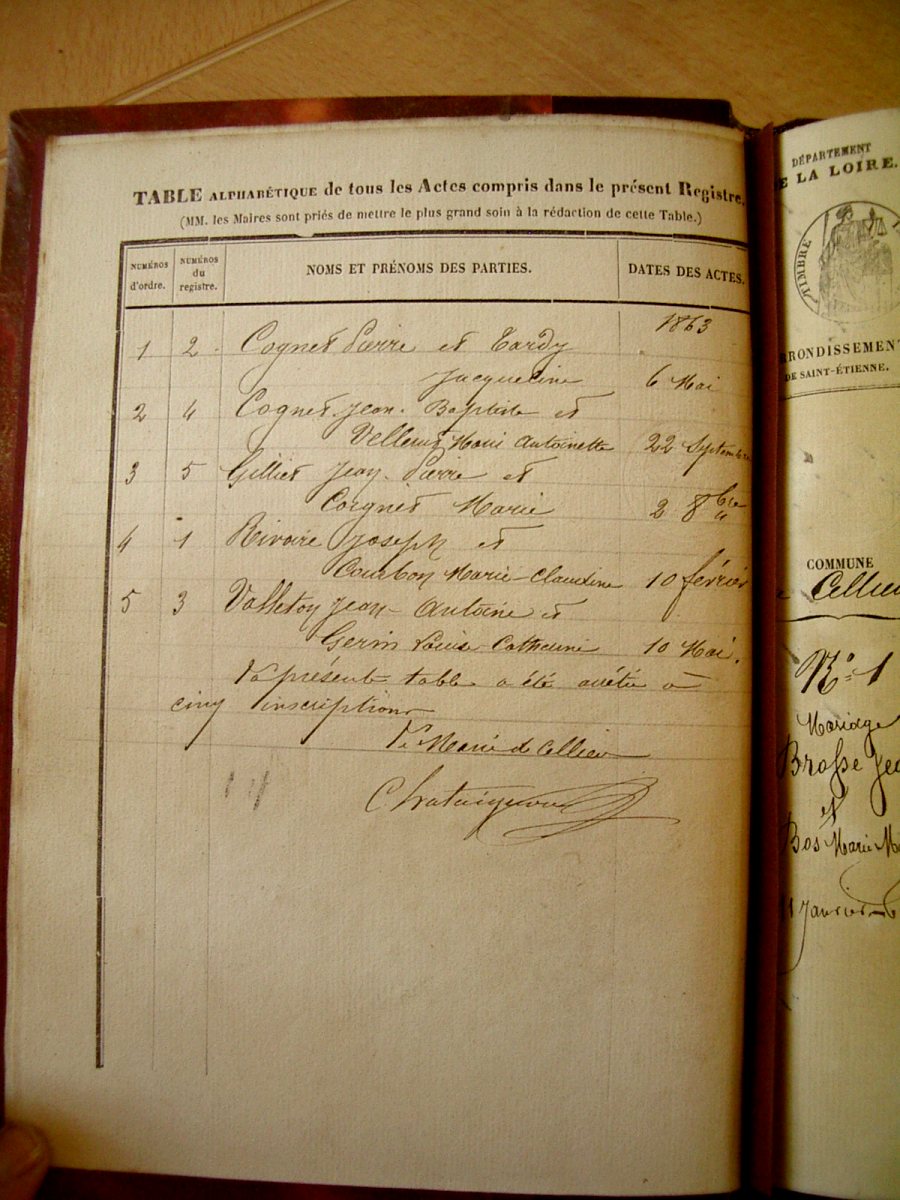 TABLE ALPHABÉTIQUE de tous les Actes compris dans le présent Registre.
(MM. les Maires sont priés de mettre le plus grand soin à la rédaction de cette Table.)
NUMÉROS d'ordre. NUMÉROS du registre. NOMS ET PRÉNOMS DES PARTIES. DATES DES ACTES.
1863
1 2 Cognet Pierre et Tardy
Jacqueline 6 Mai
2 4 Cognet Jean-Baptiste et
Marie Antoinette 22 Septembre
3 5 Gillier Jean-Pierre et
Corgnet Marie 2 8bre
4 1 Rivoire Joseph et
Courbon Marie-Claudine 10 février
5 3 Valleton Jean-Antoine et
Gerin Louise-Catherine 10 Mai.
La présente table a été arrêtée à
cinq inscriptions
Le Maire de Cellieu
DÉPARTEMENT
DE LA LOIRE.
TIMBRE
ARRONDISSEMENT
DE SAINT-ÉTIENNE.
COMMUNE
Cellieu
No. 1
Mariage
Brosse
et
Bos Marie
11 Janvier